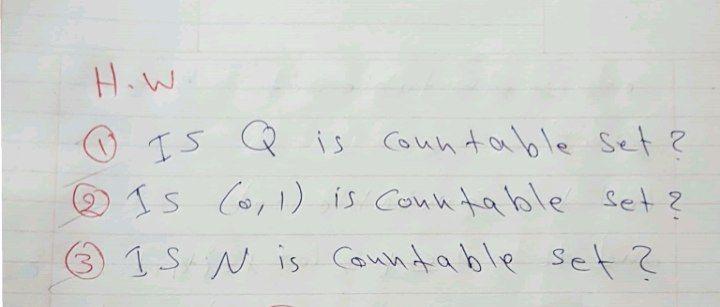 H.W
① IS Q is countable set?
② IS (0,1) is countable set?
③ IS N is countable set?